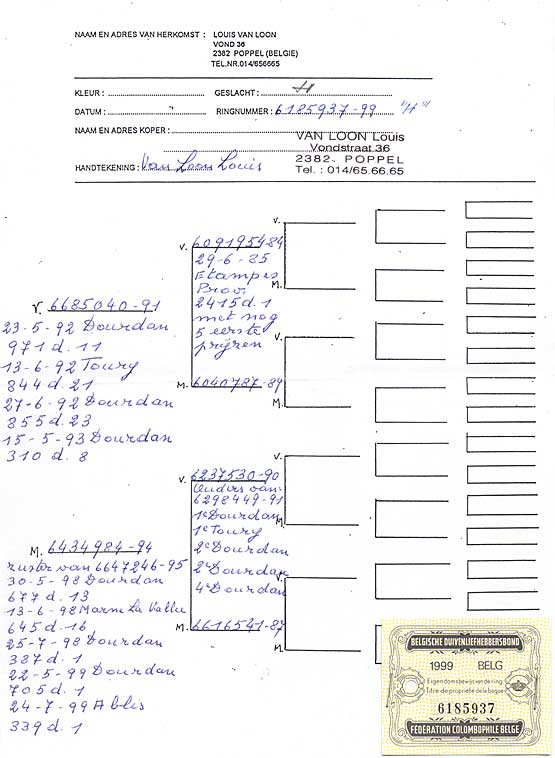 NAAM EN ADRES VAN HERKOMST : LOUIS VAN LOON
VOND 36
2382 POPPEL (BELGIE)
TEL.NR.014/656665
KLEUR : GESLACHT : H
DATUM : RINGNUMMER : 6185937-99 "H"
NAAM EN ADRES KOPER :
VAN LOON Louis
Vondstraat 36
2382. POPPEL
Tel. : 014/65.66.65
HANDTEKENING : Van Loon Louis
V. 6685040-91
23-5-92 Dourdan
971 d. 11
13-6-92 Toury
844 d. 21
27-6-92 Dourdan
855 d. 23
15-5-93 Dourdan
310 d. 8
M. 6434984-94
zuster van 6647246-95
30-5-98 Dourdan
677 d. 13
13-6-98 Marne La Vallee
645 d. 16
25-7-98 Dourdan
387 d. 1
22-5-99 Dourdan
705 d. 1
24-7-99 Ablis
339 d. 1
V. 6091954-84
29-6-85
Etampes
Prov.
2415 d. 1
met nog
5 eerste
prijzen
M. 6040787-89
V. 6237530-90
Ouders van
6298449-91
1e Dourdan
1e Toury
2e Dourdan
2e Dourdan
4e Dourdan
M. 6616541-87
V.
M.
V.
M.
V.
M.
V.
M.
BELGISCHE DUIVENLIEFHEBBERSBOND
1999 BELG
Eigendomsbewijs van den ring
Titre de propriété de la bague
6185937
FÉDÉRATION COLOMBOPHILE BELGE